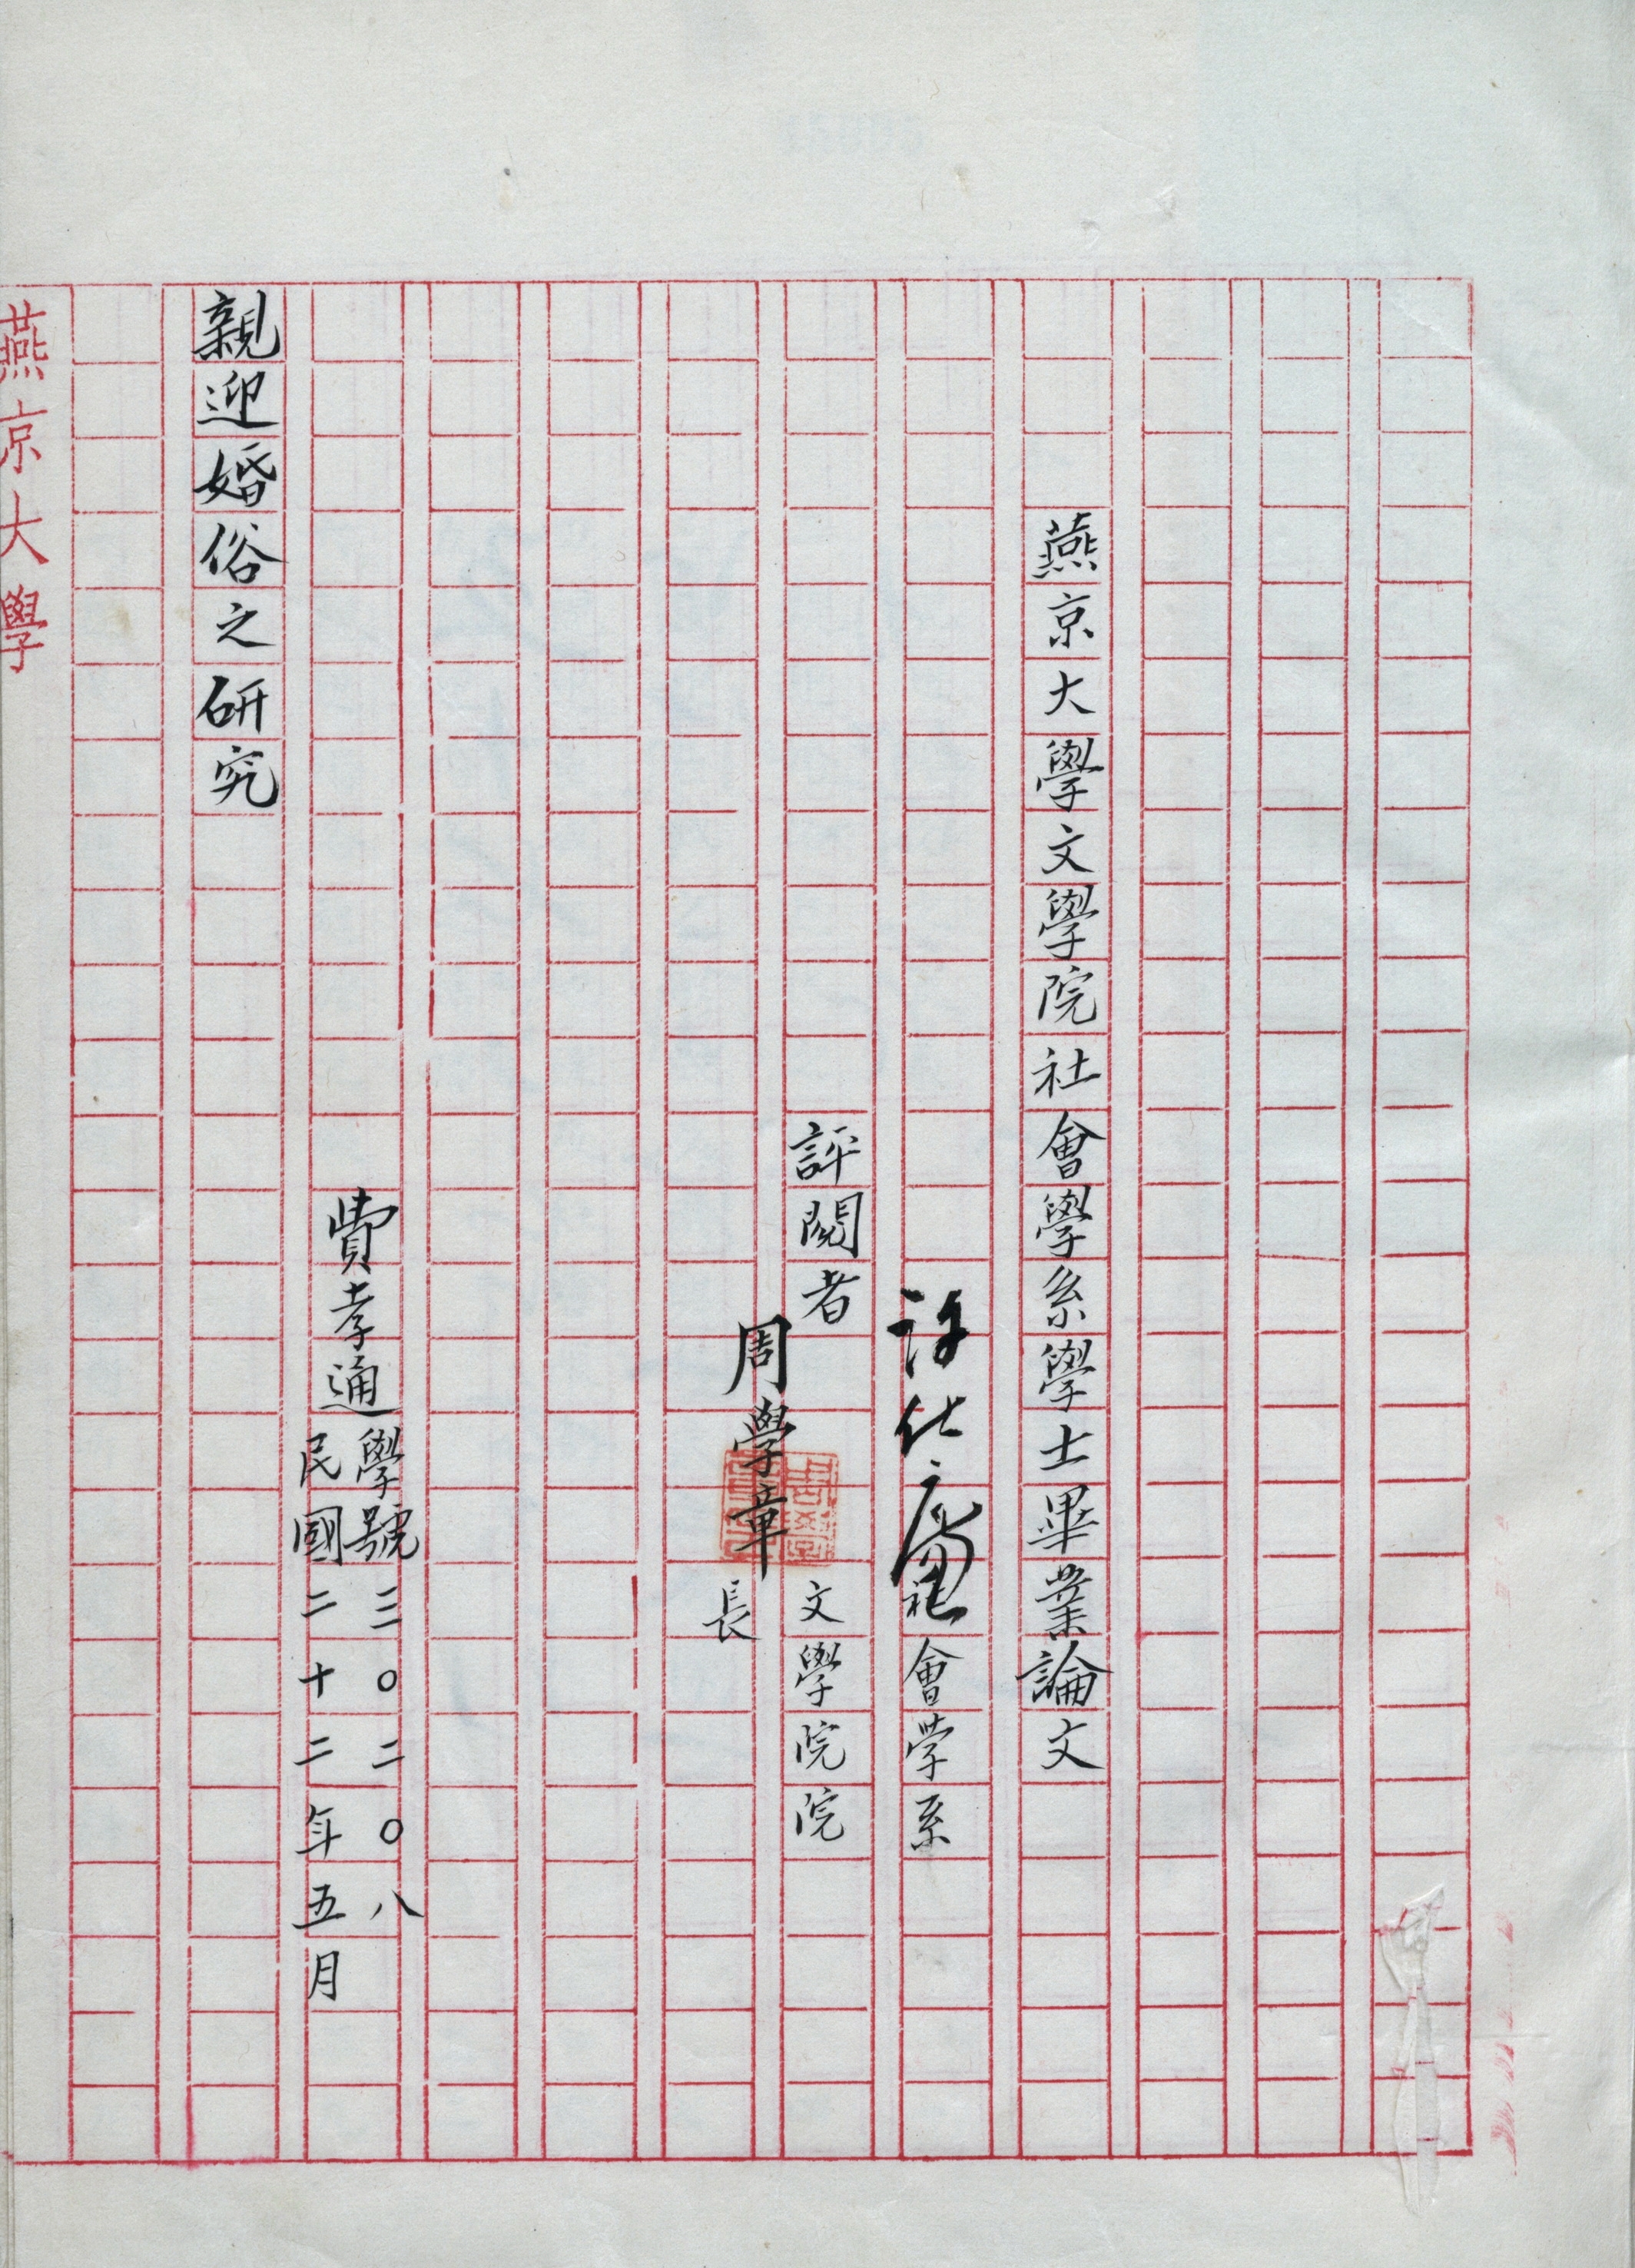 燕京大學文學院社會學系學士畢業論文
許仕廉
社會学系
評閱者
周學章
文學院院
長
費孝通
學號三〇二〇八
民國二十二年五月
親迎婚俗之研究
燕京大學